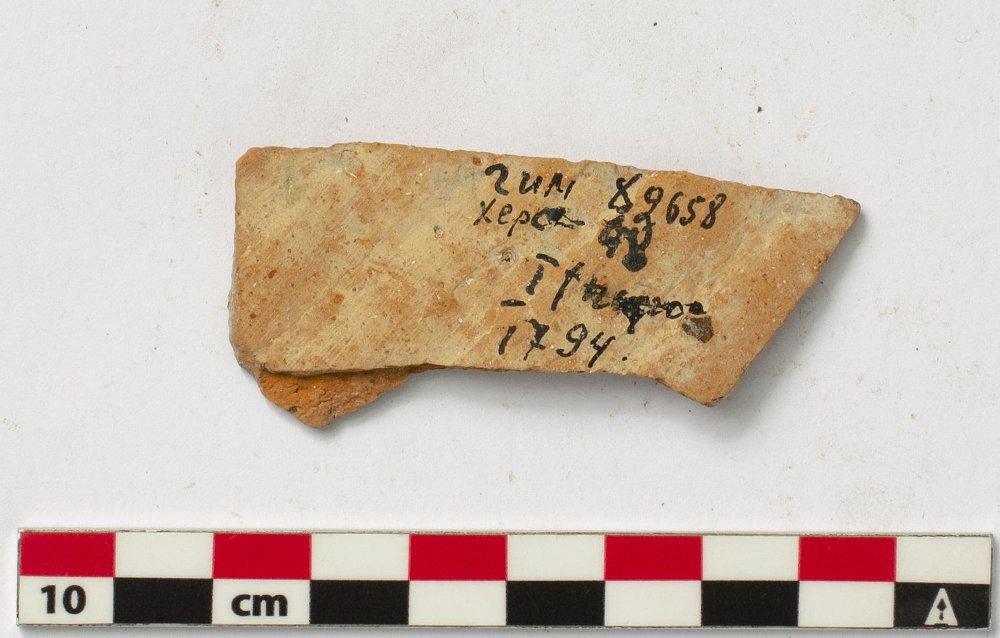 гим 89658
Херс
I
1794.
10 cm